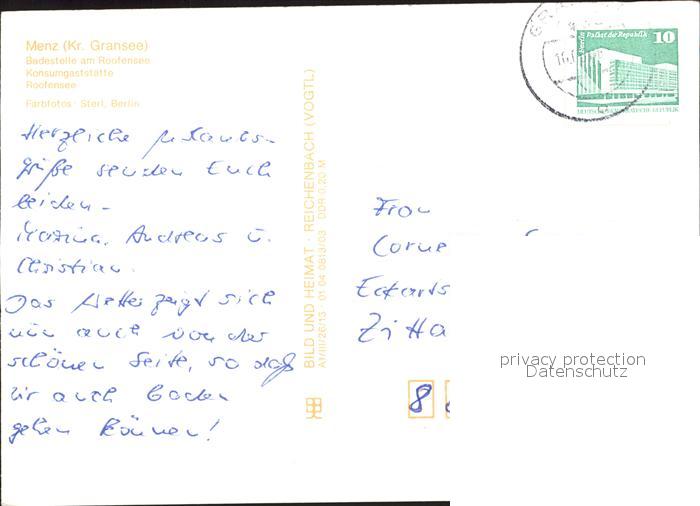 Menz (Kr. Gransee)
Badestelle am Roofensee
Konsumgaststätte
Roofensee
Farbfotos: Sterl, Berlin
Herzliche Urlaubs-
grüße senden Euch
beiden -
Andreas u.
Christian.
Das Wetter zeigt sich
nun auch von der
schönen Seite, so daß
wir auch baden
gehen können!
BILD UND HEIMAT REICHENBACH (VOGTL)
DDR 0,20 M
Berlin Palast der Republik
10
DEUTSCHE DEMOKRATISCHE REPUBLIK
Frau
Corne
Eckarts
Zitta
8
privacy protection
Datenschutz